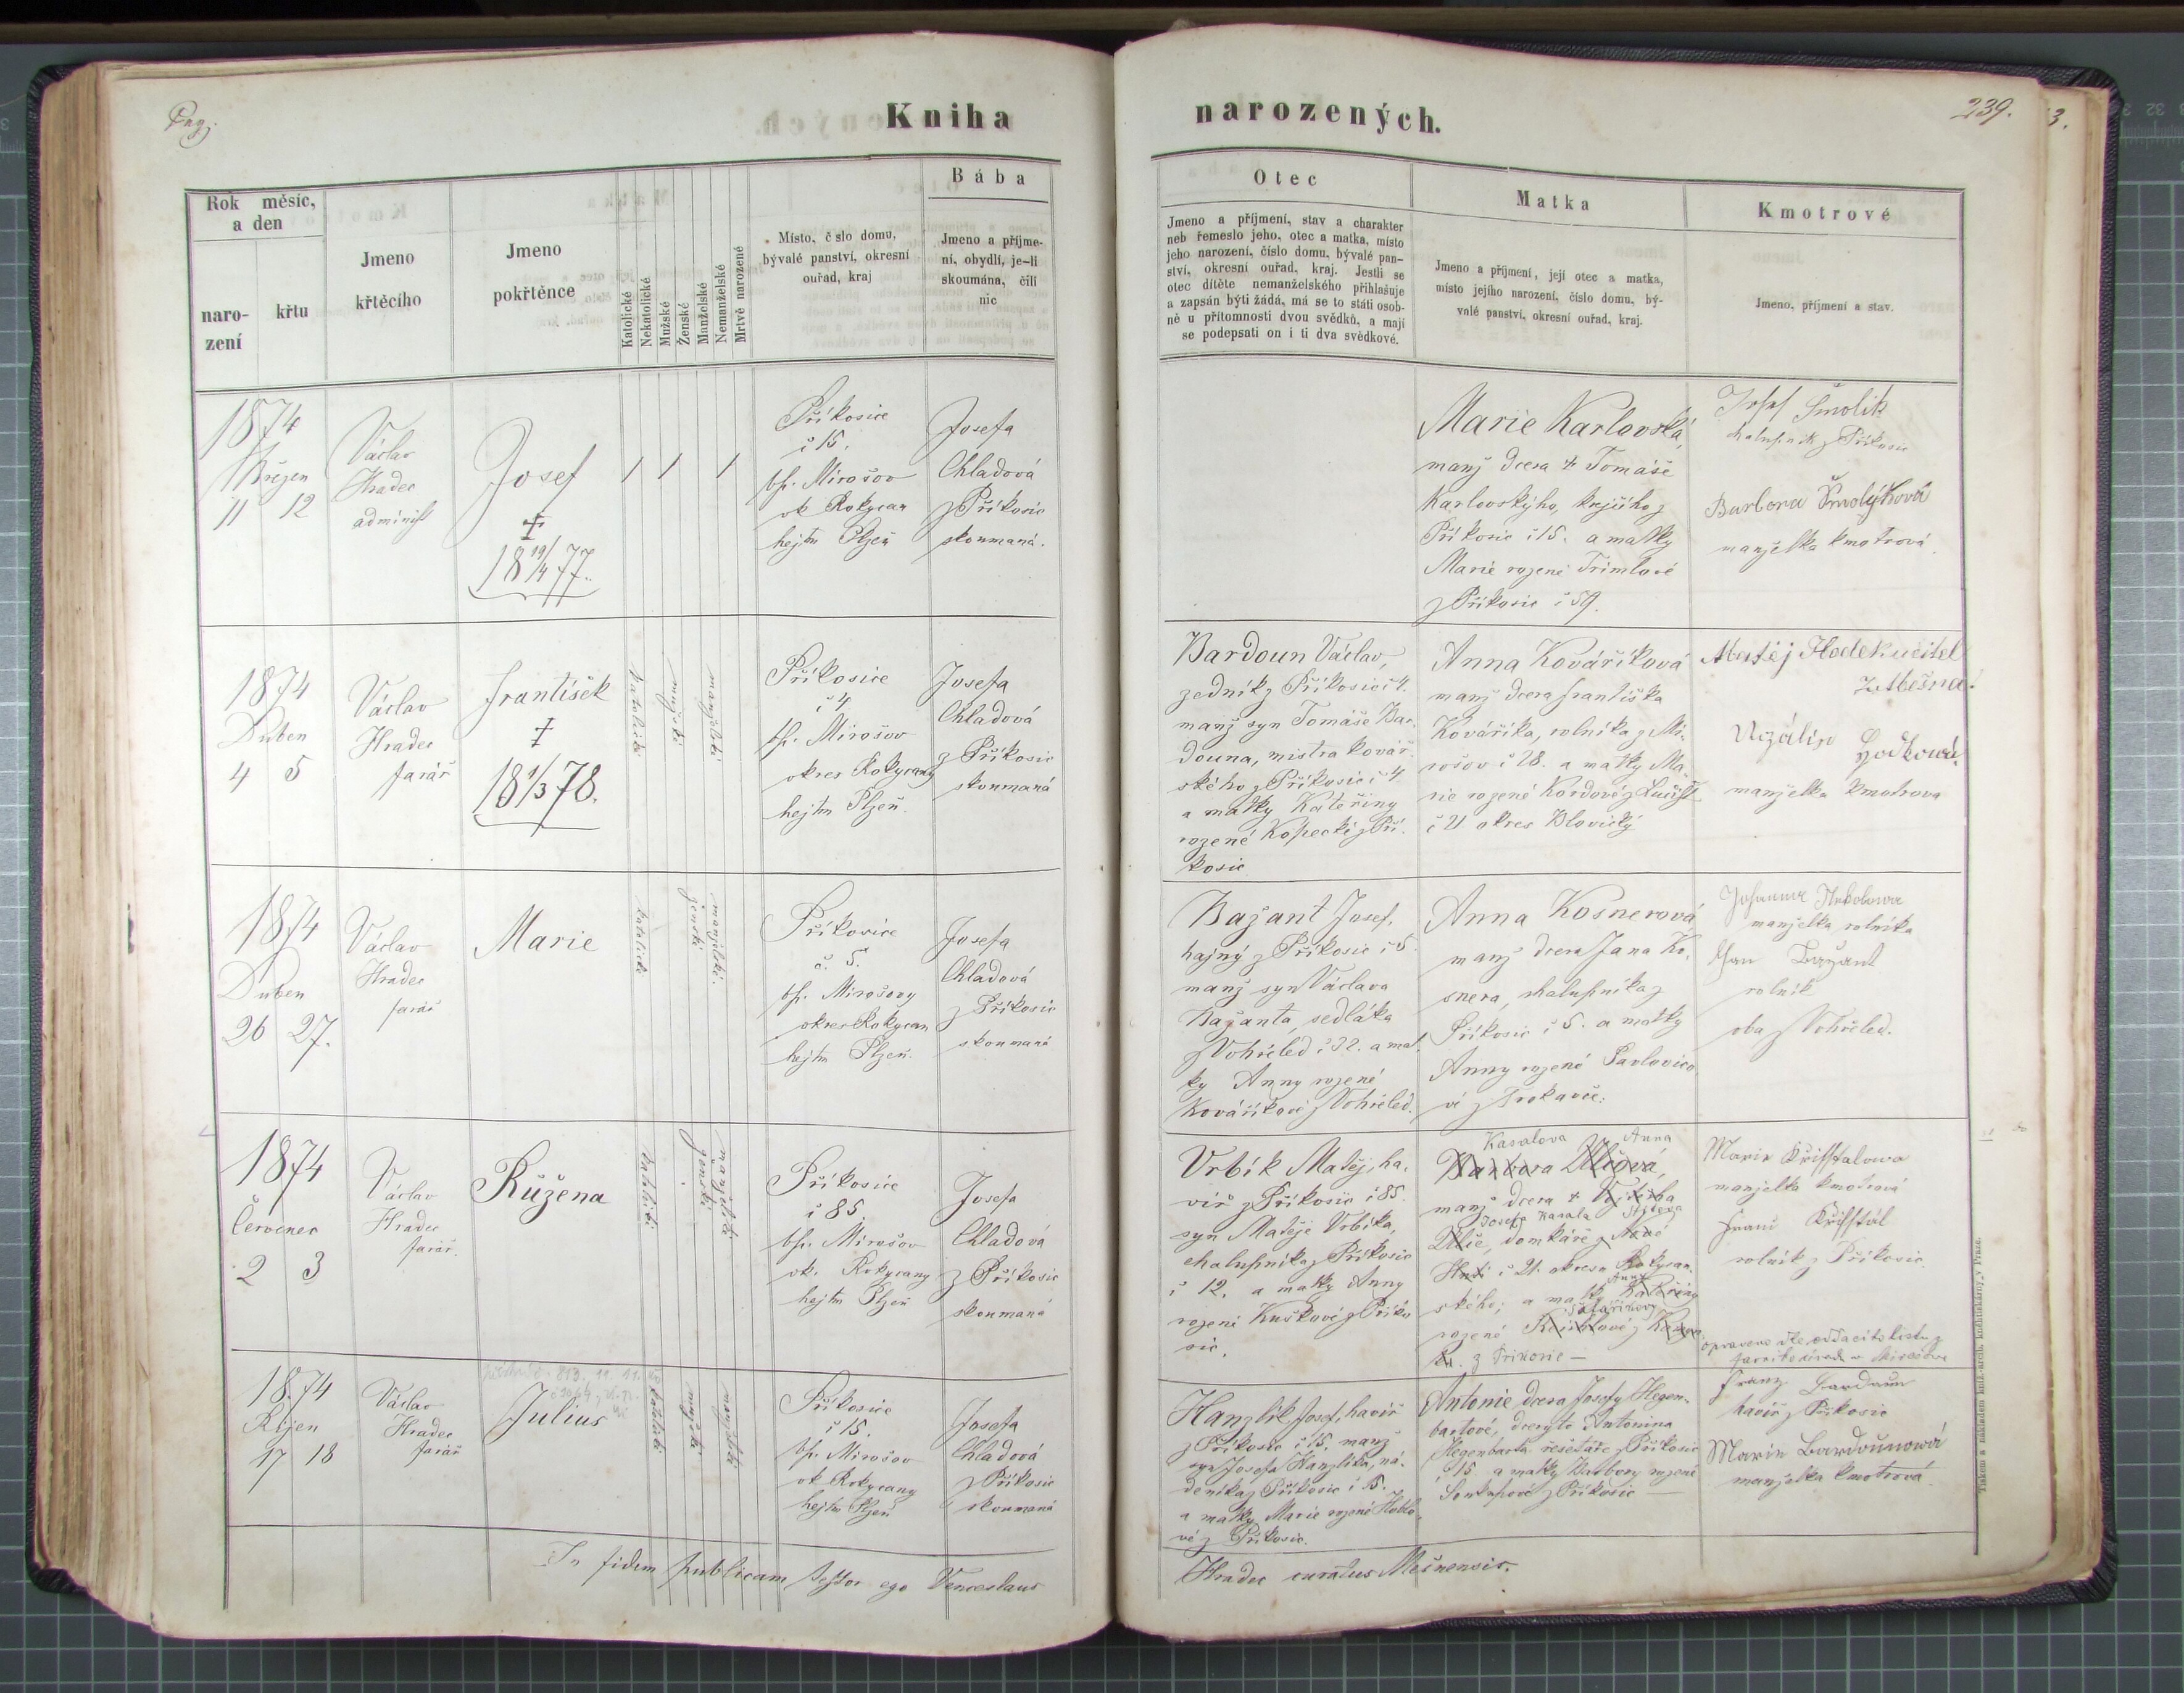 Kniha
narozených.
239.
3.
Rok měsíc,
a den
naro-
zení
křtu
Jmeno
křtěcího
Jmeno
pokřtěnce
Katolické
Nekatolické
Mužské
Ženské
Manželské
Nemanželské
Mrtvě narozené
Místo, číslo domu,
bývalé panství, okresní
ouřad, kraj
Bába
Jmeno a příjme-
ní, obydlí, je-li
skoumána, čili
nic
Otec
Jmeno a příjmení, stav a charakter
neb řemeslo jeho, otec a matka, místo
jeho narození, číslo domu, bývalé pan-
ství, okresní ouřad, kraj. Jestli se
otec dítěte nemanželského přihlašuje
a zapsán býti žádá, má se to státi osob-
ně u přítomnosti dvou svědků, a mají
se podepsati on i ti dva svědkové.
Matka
Jmeno a příjmení, její otec a matka,
místo jejího narození, číslo domu, bý-
valé panství, okresní ouřad, kraj.
Kmotrové
Jmeno, příjmení a stav.
1874
Březen
11 12
Václav
Hradec
administ
Josef
†
18 19/4 77.
Příkosice
č 15.
bp. Mirošov
ok Rokycan
hejtm Plzeň
Josefa
Chladová
z Příkosic
skoumaná.
Marie Karlovská,
manž dcera † Tomáše
Karlovskýho, krejčího z
Příkosic č 15. a matky
Marie rozené Trimlové
z Příkosic č 59.
Josef Šmolik
chalupník z Příkosic
Barbora Šmolýková
manželka kmotrová.
1874
Duben
4 5
Václav
Hradec
farář
František
†
18 1/3 78.
katolické
mužské
manželské
Příkosice
č 4
bp. Mirošov
okres Rokycany
hejtm Plzeň.
Josefa
Chladová
z Příkosic
skoumaná
Bardoun Václav,
zedník z Příkosic č 4.
manž syn Tomáše Bar-
douna, mistra kovář-
ského z Příkosic č 4
a matky Kateřiny
rozené Kopecké z Pří-
kosic
Anna Kováříková
manž dcera Františka
Kováříka, rolníka z Mi-
rošov č 28. a matky Ma-
rie rozené Kordové z
č 21 okres Blovický
Matěj Hodek učitel
ze Mešna.
manželka kmotrova
1874
Duben
26 27.
Václav
Hradec
farář
Marie
katolické
ženské
manželské
Příkosice
č. 5.
bp. Mirošovy
okres Rokycan
hejtm Plzeň.
Josefa
Chladová
z Příkosic
skoumaná
Bažant Josef,
hajný z Příkosic č 5.
manž syn Václava
Bažanta, sedláka
z Vohřeled č 32. a mat-
ky Anny rozené
Kováříkové z Vohřeled.
Anna Kosnerová,
manž dcera Jana Ko-
snera, chalupníka z
Příkosic č 5. a matky
Anny rozené Pavlovico-
vé z Trokavce.
manželka rolníka
Jan Bažant
rolník
oba z Vohřeled.
1874
Červenec
2 3
Václav
Hradec
farář.
Růžena
katolické
ženské
manželské
Příkosice
č 85.
bp. Mirošov
ok. Rokycany
hejtm Plzeň
Josefa
Chladová
z Příkosic
skoumaná
Vrbík Matěj, ha-
víř z Příkosic č 85.
syn Matěje Vrbíka,
chalupníka z Příkosic
č 12. a matky Anny
rozené Kuškové z Příko
sic.
Kasalova Anna
Barbora
manž dcera † Vojtěcha
Josefa Kasala
domkáře z Nové
Huti č 21. okresu Rokycan-
ského; a matky Kateřiny
Anny
rozené
z Příkosic —
Marie Křišťalowa
manželka kmotrová
Franc Křišťál
rolník z Příkosic.
1874
Říjen
17 18
Václav
Hradec
farář
Julius
katolické
mužské
manželské
Příkosice
č 15.
bp. Mirošov
ok Rokycany
hejtm Plzeň
Josefa
Chladová
z Příkosic
skoumaná
Hanzlík Josef, havíř
z Příkosic č 15. manž
syn Josefa Hanzlíka, ná-
deníka z Příkosic č 15.
a matky Marie rozené
vé z Příkosic.
Antonie dcera Josefy Hegen-
bartové, dcery to Antonína
Hegenbarta řešetáře z Příkosic
č 15 a matky Barbory rozené
z Příkosic —
Franz Bardaun
havíř z Příkosic
Marie Bardounowá
manželka kmotrová.
In fidem publicam testor ego Venceslaus
Hradec curatus Mešnensis.